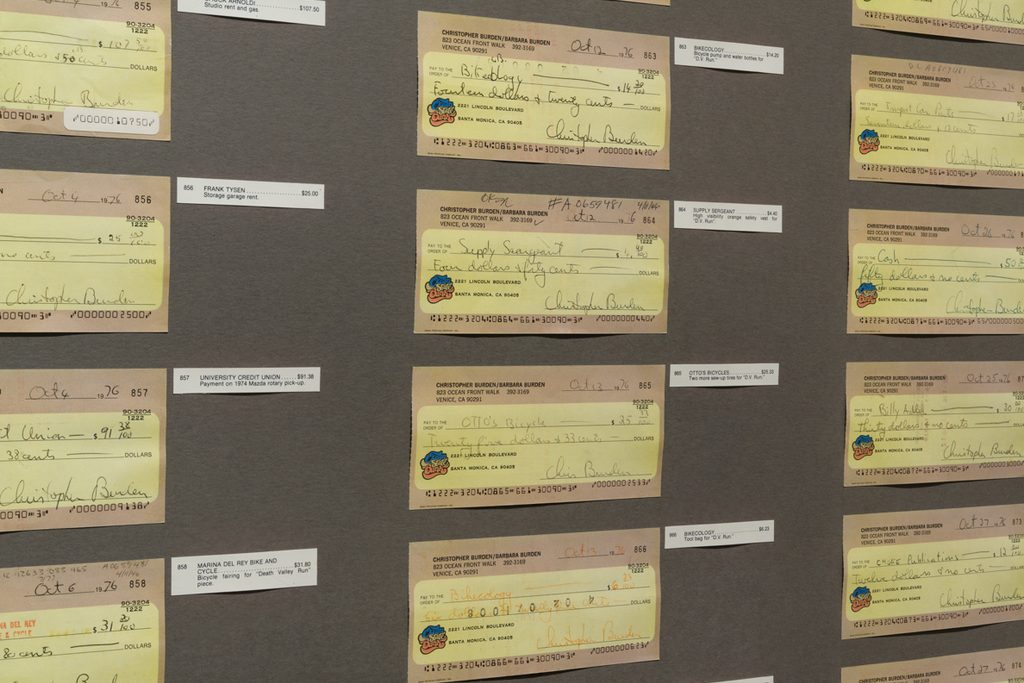 855
$ 107 50/100
dollars & 50 cents DOLLARS
Christopher Burden
0090 3 0000010750
Studio rent and gas. $107.50
Oct 4 1976 856
90-3204
1222
$ 25
no cents DOLLARS
Christopher Burden
0090 3 0000002500
856 FRANK TYSEN $25.00
Storage garage rent.
Oct 4 1976 857
90-3204
1222
Union $ 91 38/100
38 cents DOLLARS
Christopher Burden
0090 3 0000009138
857 UNIVERSITY CREDIT UNION $91.38
Payment on 1974 Mazda rotary pick-up.
Oct 6 1976 858
90-3204
1222
NA DEL REY
E & CYCLE $ 31 80/100
80 cents DOLLARS
858 MARINA DEL REY BIKE AND
CYCLE $31.80
Bicycle fairing for "Death Valley Run"
piece.
CHRISTOPHER BURDEN/BARBARA BURDEN
823 OCEAN FRONT WALK 392-3169
VENICE, CA 90291
Oct 12 1976 863
90-3204
1222
PAY TO THE
ORDER OF Bikecology $ 14 20/100
Fourteen dollars & twenty cents DOLLARS
2221 LINCOLN BOULEVARD
SANTA MONICA, CA 90405
Christopher Burden
1222 3204 0863 661 30090 3 0000001420
863 BIKECOLOGY $14.20
Bicycle pump and water bottles for
"D.V. Run."
#A0659481
CHRISTOPHER BURDEN/BARBARA BURDEN
823 OCEAN FRONT WALK 392-3169
VENICE, CA 90291
Oct 12 1976 864
90-3204
1222
PAY TO THE
ORDER OF Supply Seargeant
Four dollars & fifty cents DOLLARS
2221 LINCOLN BOULEVARD
SANTA MONICA, CA 90405
Christopher Burden
1222 3204 0864 661 30090 3 0000000440
864 SUPPLY SERGEANT $4.40
High visibility orange safety vest for
"D.V. Run"
CHRISTOPHER BURDEN/BARBARA BURDEN
823 OCEAN FRONT WALK 392-3169
VENICE, CA 90291
Oct 13 1976 865
90-3204
1222
PAY TO THE
ORDER OF OTTO's Bicycle $ 25 33/100
Twenty five dollars & 33 cents DOLLARS
2221 LINCOLN BOULEVARD
SANTA MONICA, CA 90405
Chris Burden
1222 3204 0865 661 30090 3 0000002533
865 OTTO'S BICYCLES $25.33
Two more sew-up tires for "D.V. Run".
CHRISTOPHER BURDEN/BARBARA BURDEN
823 OCEAN FRONT WALK 392-3169
VENICE, CA 90291
Oct 13 1976 866
90-3204
1222
PAY TO THE
ORDER OF Bikecology $ 6 23/100
DOLLARS
2221 LINCOLN BOULEVARD
SANTA MONICA, CA 90405
Christopher Burden
1222 3204 0866 661 30090 3 0000000623
866 BIKECOLOGY $6.23
Tool bag for "D.V. Run"
CHRISTOPHER BURDEN/BARBARA BURDEN
823 OCEAN FRONT WALK 392-3169
VENICE, CA 90291
PAY TO THE
ORDER OF
2221 LINCOLN BOULEVARD
SANTA MONICA, CA 90405
Christopher Burden
CHRISTOPHER BURDEN/BARBARA BURDEN
823 OCEAN FRONT WALK 392-3169
VENICE, CA 90291
Oct 26 1976
PAY TO THE
ORDER OF Cash
fifty dollars & no cents
2221 LINCOLN BOULEVARD
SANTA MONICA, CA 90405
Christopher Burden
CHRISTOPHER BURDEN/BARBARA BURDEN
823 OCEAN FRONT WALK 392-3169
VENICE, CA 90291
Oct 25 1976
PAY TO THE
ORDER OF Billy
Thirty dollars & no cents
2221 LINCOLN BOULEVARD
SANTA MONICA, CA 90405
Christopher Burden
CHRISTOPHER BURDEN/BARBARA BURDEN
823 OCEAN FRONT WALK 392-3169
VENICE, CA 90291
Oct 27 1976 873
PAY TO THE
ORDER OF Publications $ 12
Twelve dollars & no cents
2221 LINCOLN BOULEVARD
SANTA MONICA, CA 90405
Christopher Burden
CHRISTOPHER BURDEN/BARBARA BURDEN
Oct 27 1976 874